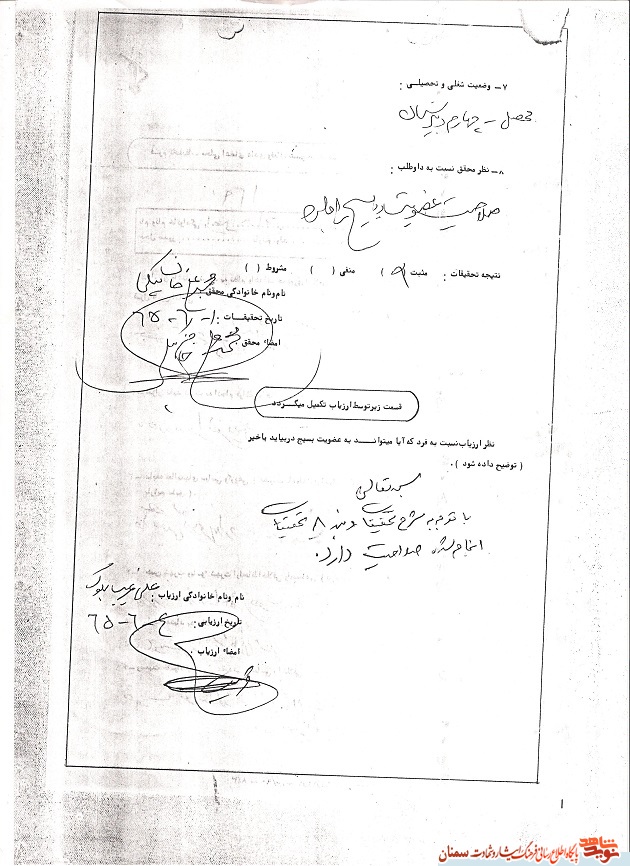 ۷- وضعیت شغلی و تحصیلی :
محصل - چهارم دبیرستان
۸- نظر محقق نسبت به داوطلب :
صلاحیت عضویت در بسیج را
نتیجه تحقیقات : مثبت ( ) منفی ( ) مشروط ( )
نام ونام خانوادگی محقق
تاریخ تحقیقات : ۱-۶-۶۵
امضاء محقق
قسمت زیر توسط ارزیاب تکمیل میگردد
نظر ارزیاب نسبت به فرد که آیا میتوانـد به عضویت بسیج دربیاید یاخیر
( توضیح داده شود ) .
بسمه تعالی
با توجه به شرح تحقیقات و بند ۸ تحقیقات
انجام شده صلاحیت دارد.
نام ونام خانوادگی ارزیاب علی غریب بلوک
تاریخ ارزیابی : ۶-۶۵
امضاء ارزیاب .
۱
نوید شاهد
پایگاه اطلاع رسانی فرهنگ ایثار و شهادت سمنان